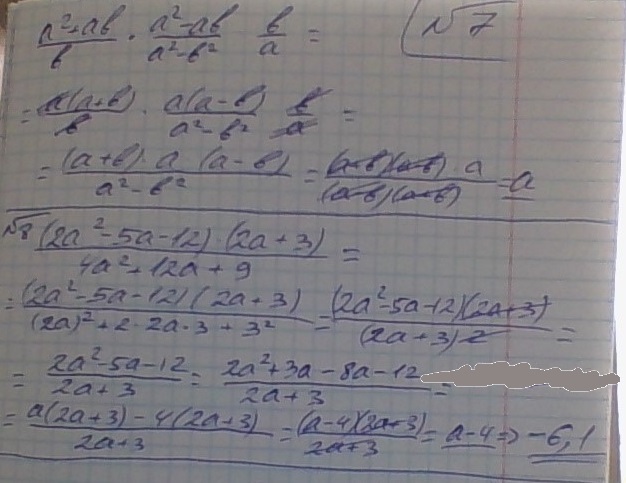 a²+ab/b · a²-ab/a²-b² b/a = √7
= a(a+b)/b · a(a-b)/a²-b² b/a =
= (a+b)·a (a-b)/a²-b² = (a-b)(a+b) a/(a-b)(a+b) = a
√8 (2a²-5a-12)·(2a+3)/4a²+12a+9 =
= (2a²-5a-12)(2a+3)/(2a)²+2·2a·3+3² = (2a²-5a-12)(2a+3)/(2a+3)2 =
= 2a²-5a-12/2a+3 = 2a²+3a-8a-12/2a+3 =
= a(2a+3)-4(2a+3)/2a+3 = (a-4)(2a+3)/2a+3 = a-4 => -6,1